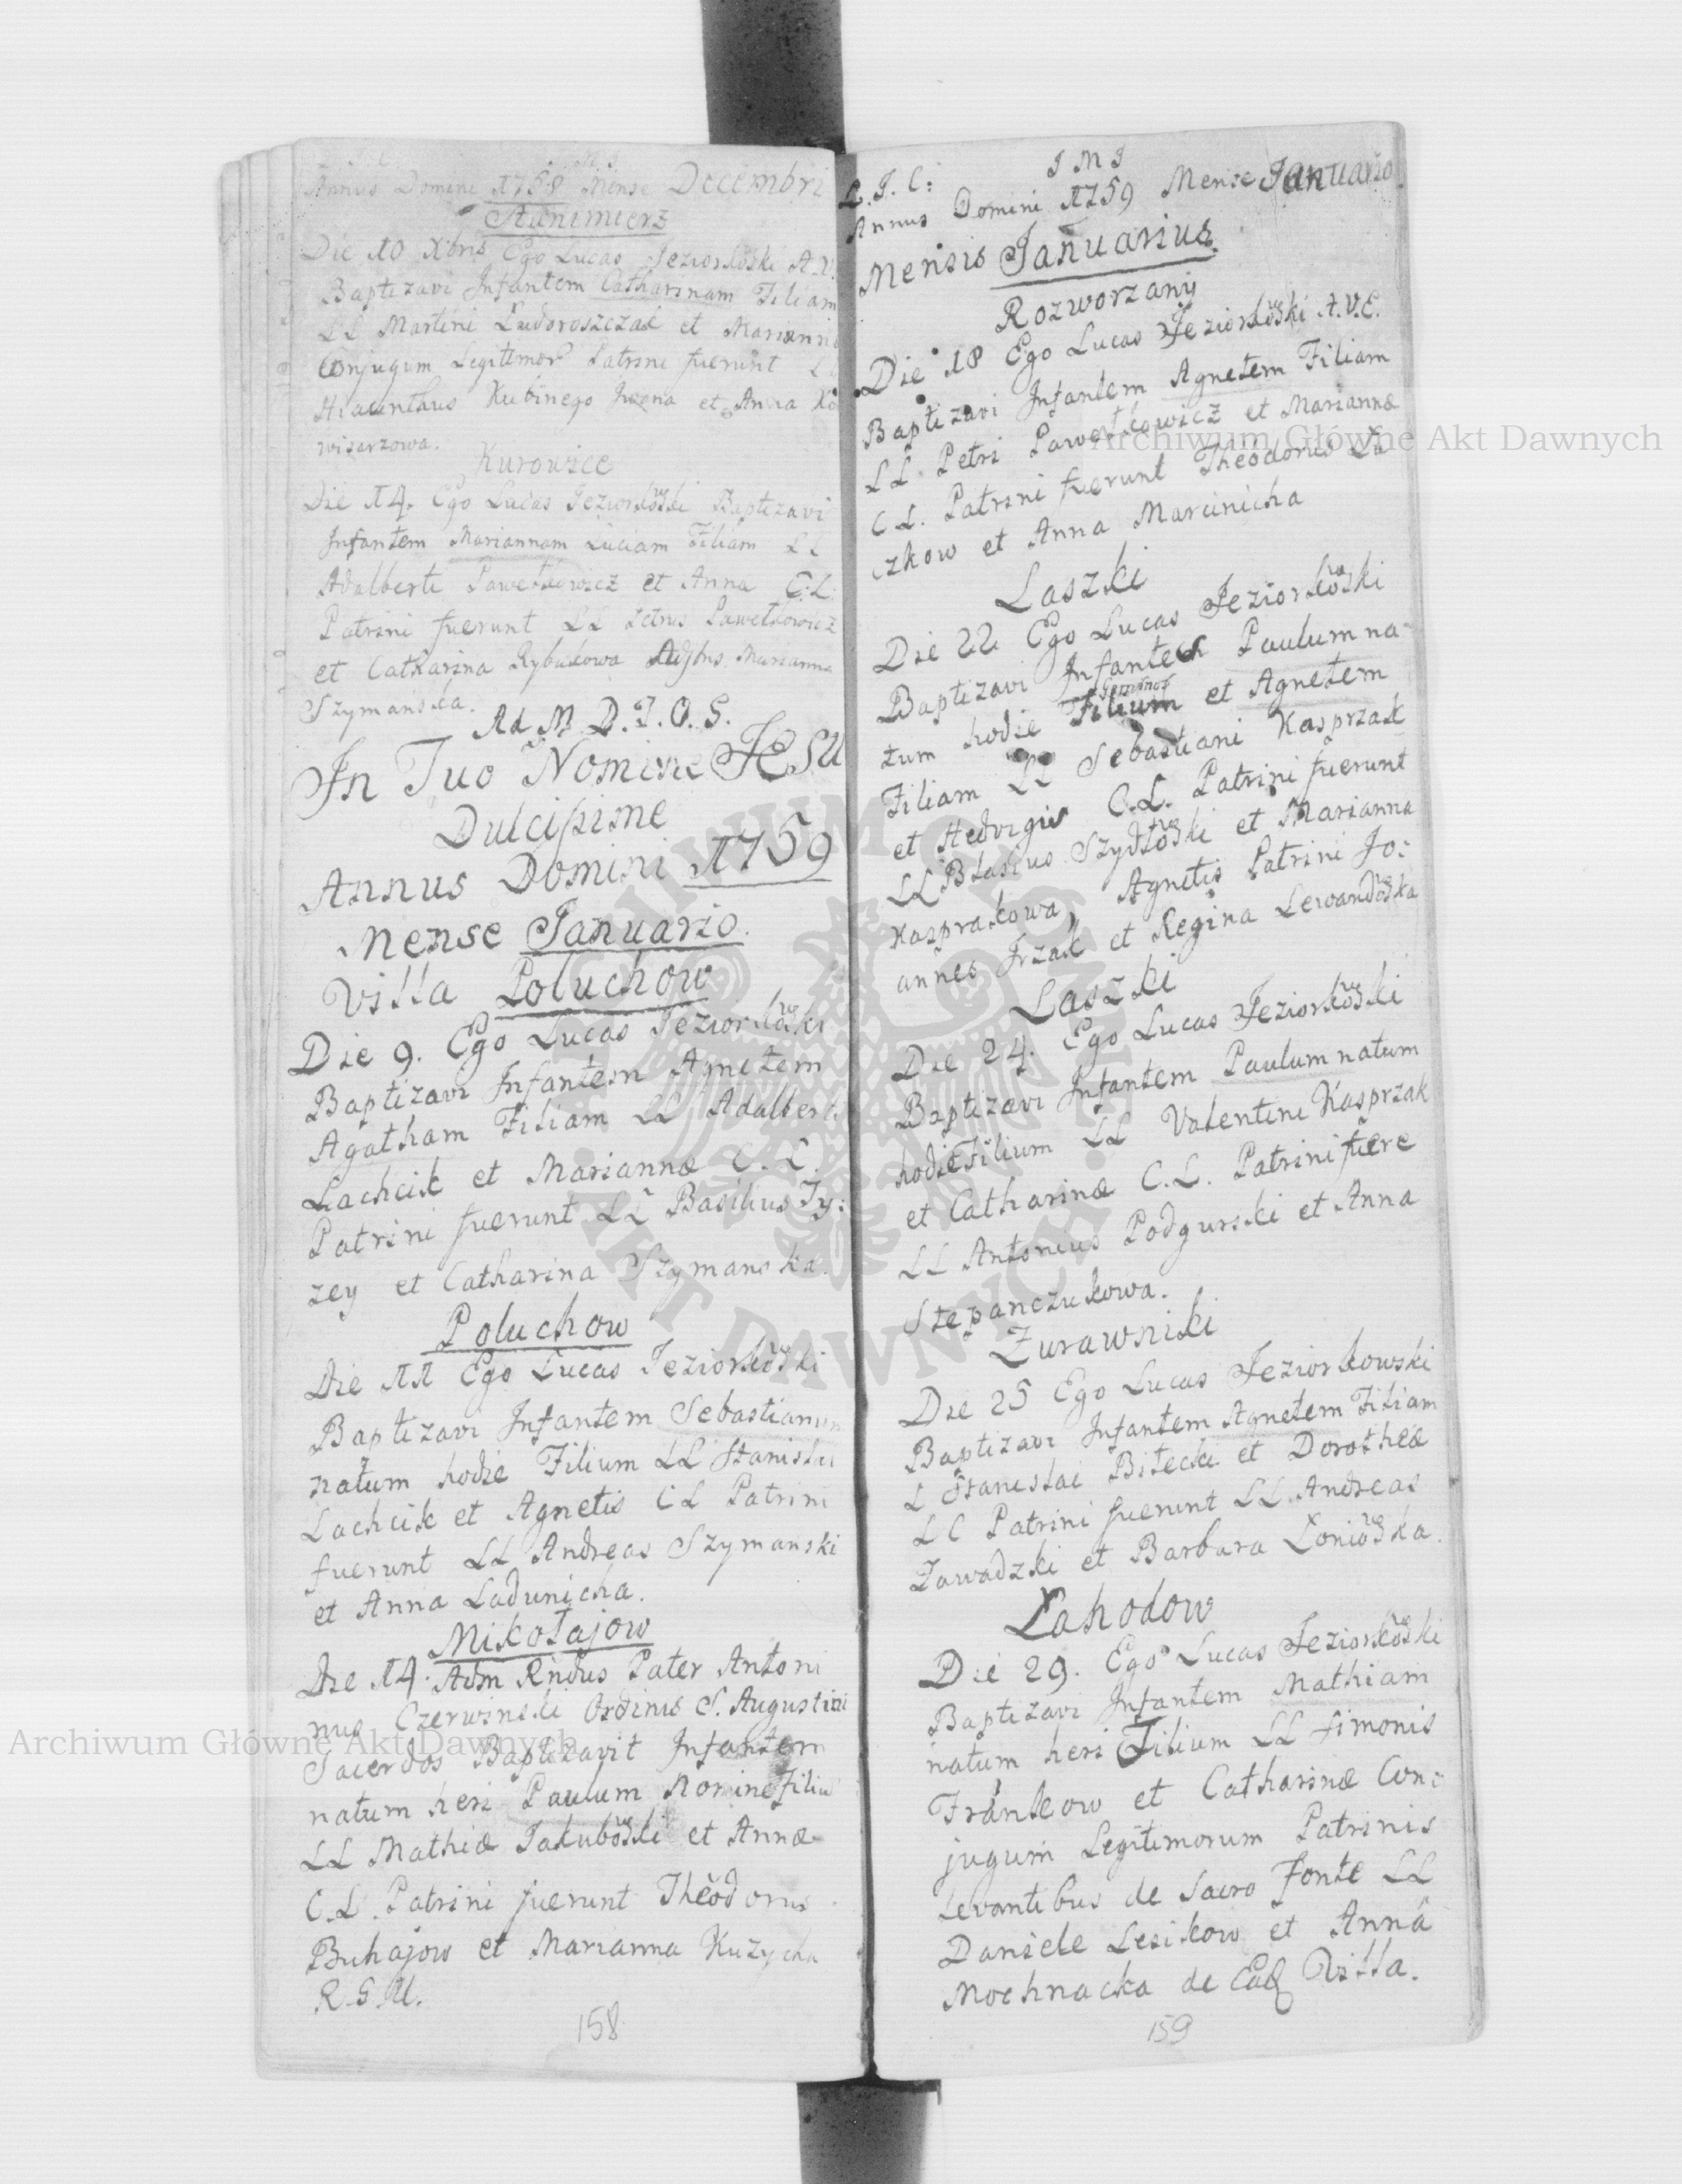 Annus Domini 1758 Mense Decembri
Die 10 Xbris Ego Lucas Jeziorkowski A.V.
Baptizavi Infantem Catharinam Filiam
LL Martini Ludoroszczak et Marianna
Conjugum Legitimor Patrini fuerunt
Hiacinthus Kubinego et Anna
wisarzowa.
Kurowice
Die 14. Ego Lucas Jeziorkowski Baptizavi
Infantem Mariannam Luciam Filiam LL
Adalberti Pawełkowicz et Anna C:L:
Patrini fuerunt LL Petrus Pawełkowicz
et Catharina Rybakowa Marianna
Szymańska.
Ad M D.I.O.S.
In Tuo Nomine JESU
Dulcissime
Annus Domini 1759
Mense Januario.
Villa Poluchow
Die 9. Ego Lucas Jeziorkowski
Baptizavi Infantem Agnetem
Agatham Filiam LL Adalberti
Lachcik et Mariannæ C.L.
Patrini fuerunt LL Basilius Ty:
zey et Catharina Szymanska.
Poluchow
Die 11 Ego Lucas Jeziorkowski
Baptizavi Infantem Sebastianum
natum hodie Filium LL Stanislai
Lachcik et Agnetis CL Patrini
fuerunt LL Andreas Szymanski
et Anna Ladunicha.
Mikołajow
Die 14. Adm Rndus Pater Antoni
nus Czerwinski Ordinis S. Augustini
Sacerdos Baptizavit Infantem
natum heri Paulum Nomine Filiu
LL Mathiæ Jakubowski et Annæ
C.L. Patrini fuerunt Theodorus
Buhajow et Marianna Kuzycha
R.G.U.
158
I M I
L.J.C:
Annus Domini 1759 Mense Januario
Mensis Januarius.
Rozworzany
Die 18 Ego Lucas Jeziorkowski A.V.E.
Baptizavi Infantem Agnetem Filiam
LL Petri Pawełkowicz et Mariannæ
C L. Patrini fuerunt Theodorus Lu
czkow et Anna Marcinicha
Laszki
Die 22 Ego Lucas Jeziorkowski
Baptizavi Infantes Paulum na-
Geminos
tum hodie Filium et Agnetem
Filiam LL Sebastiani Kasprzak
et Hedvigis C.L. Patrini fuerunt
LL Blasius Szydłowski et Marianna
Kasprakowa, Agnetis Patrini Jo:
annes Irzak et Regina Lewandowska
Laszki
Die 24. Ego Lucas Jeziorkowski
Baptizavi Infantem Paulum natum
hodie Filium LL Valentini Kasprzak
et Catharinæ C.L. Patrini fuere
LL Antonius Podgurski et Anna
Stepanczukowa.
Zurawniki
Die 25 Ego Lucas Jeziorkowski
Baptizavi Infantem Agnetem Filiam
L Stanislai Bilecki et Dorotheæ
L C Patrini fuerunt LL. Andreas
Zawadzki et Barbara Loniowska.
Lahodow
Die 29. Ego Lucas Jeziorkowski
Baptizavi Infantem Mathiam
natum heri Filium LL Simonis
Frankow et Catharinæ Con:
jugum Legitimorum Patrinis
Levantibus de Sacro fonte LL
Daniele Lesikow et Anna
Mochnacka de Ead Villa.
159
Archiwum Główne Akt Dawnych
Archiwum Główne Akt Dawnych
ARCHIWUM GŁÓWNE AKT DAWNYCH